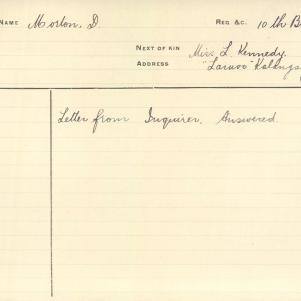 NAME Morton, D. REG &C. 10th B
NEXT OF KIN Miss L. Kennedy.
ADDRESS
Letter from Inquirer. Answered.